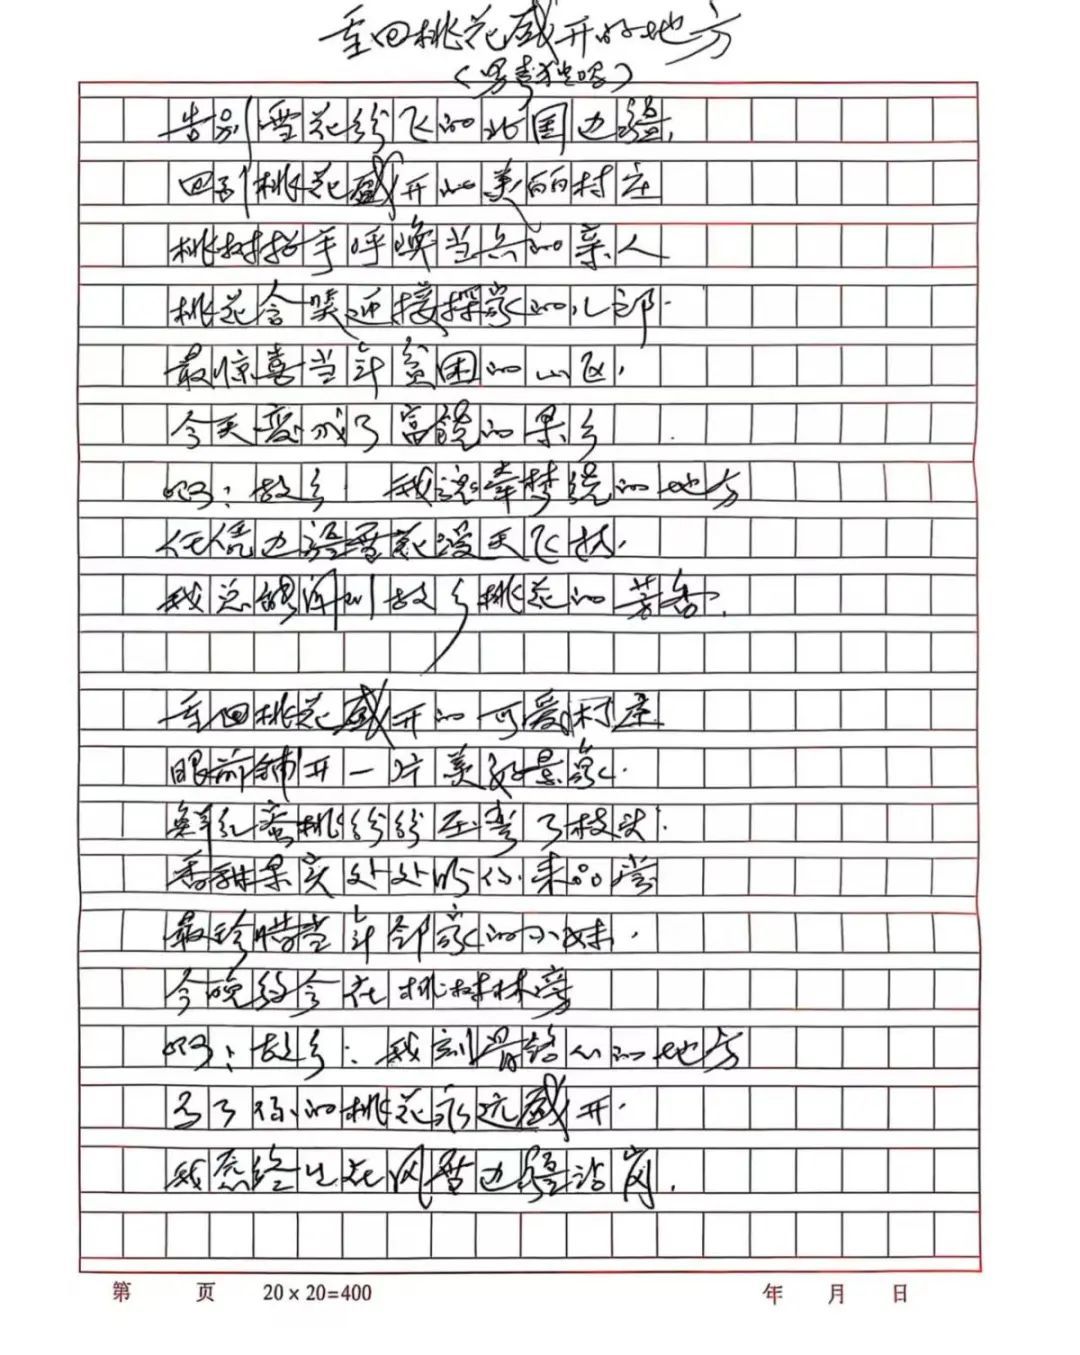 重回桃花盛开的地方
（男声独唱）
告别雪花纷飞的北国边疆，
回到桃花盛开的美丽村庄
桃树招手呼唤当兵的亲人
桃花含笑迎接探家的儿郎.
最惊喜当年贫困的山区，
今天变成了富饶的果乡
啊：故乡. 我魂牵梦绕的地方
任凭边疆雪花漫天飞扬.
我总能闻到故乡桃花的芳香.
重回桃花盛开的可爱村庄
眼前铺开一片美好景象.
鲜红蜜桃纷纷压弯了枝头.
香甜果实处处盼你来品尝
最珍惜当年邻家的小妹.
今晚约会在桃树林旁
啊：故乡：我刻骨铭心的地方
为了你的桃花永远盛开.
我愿终生在风雪边疆站岗.
第 页 20×20=400 年 月 日